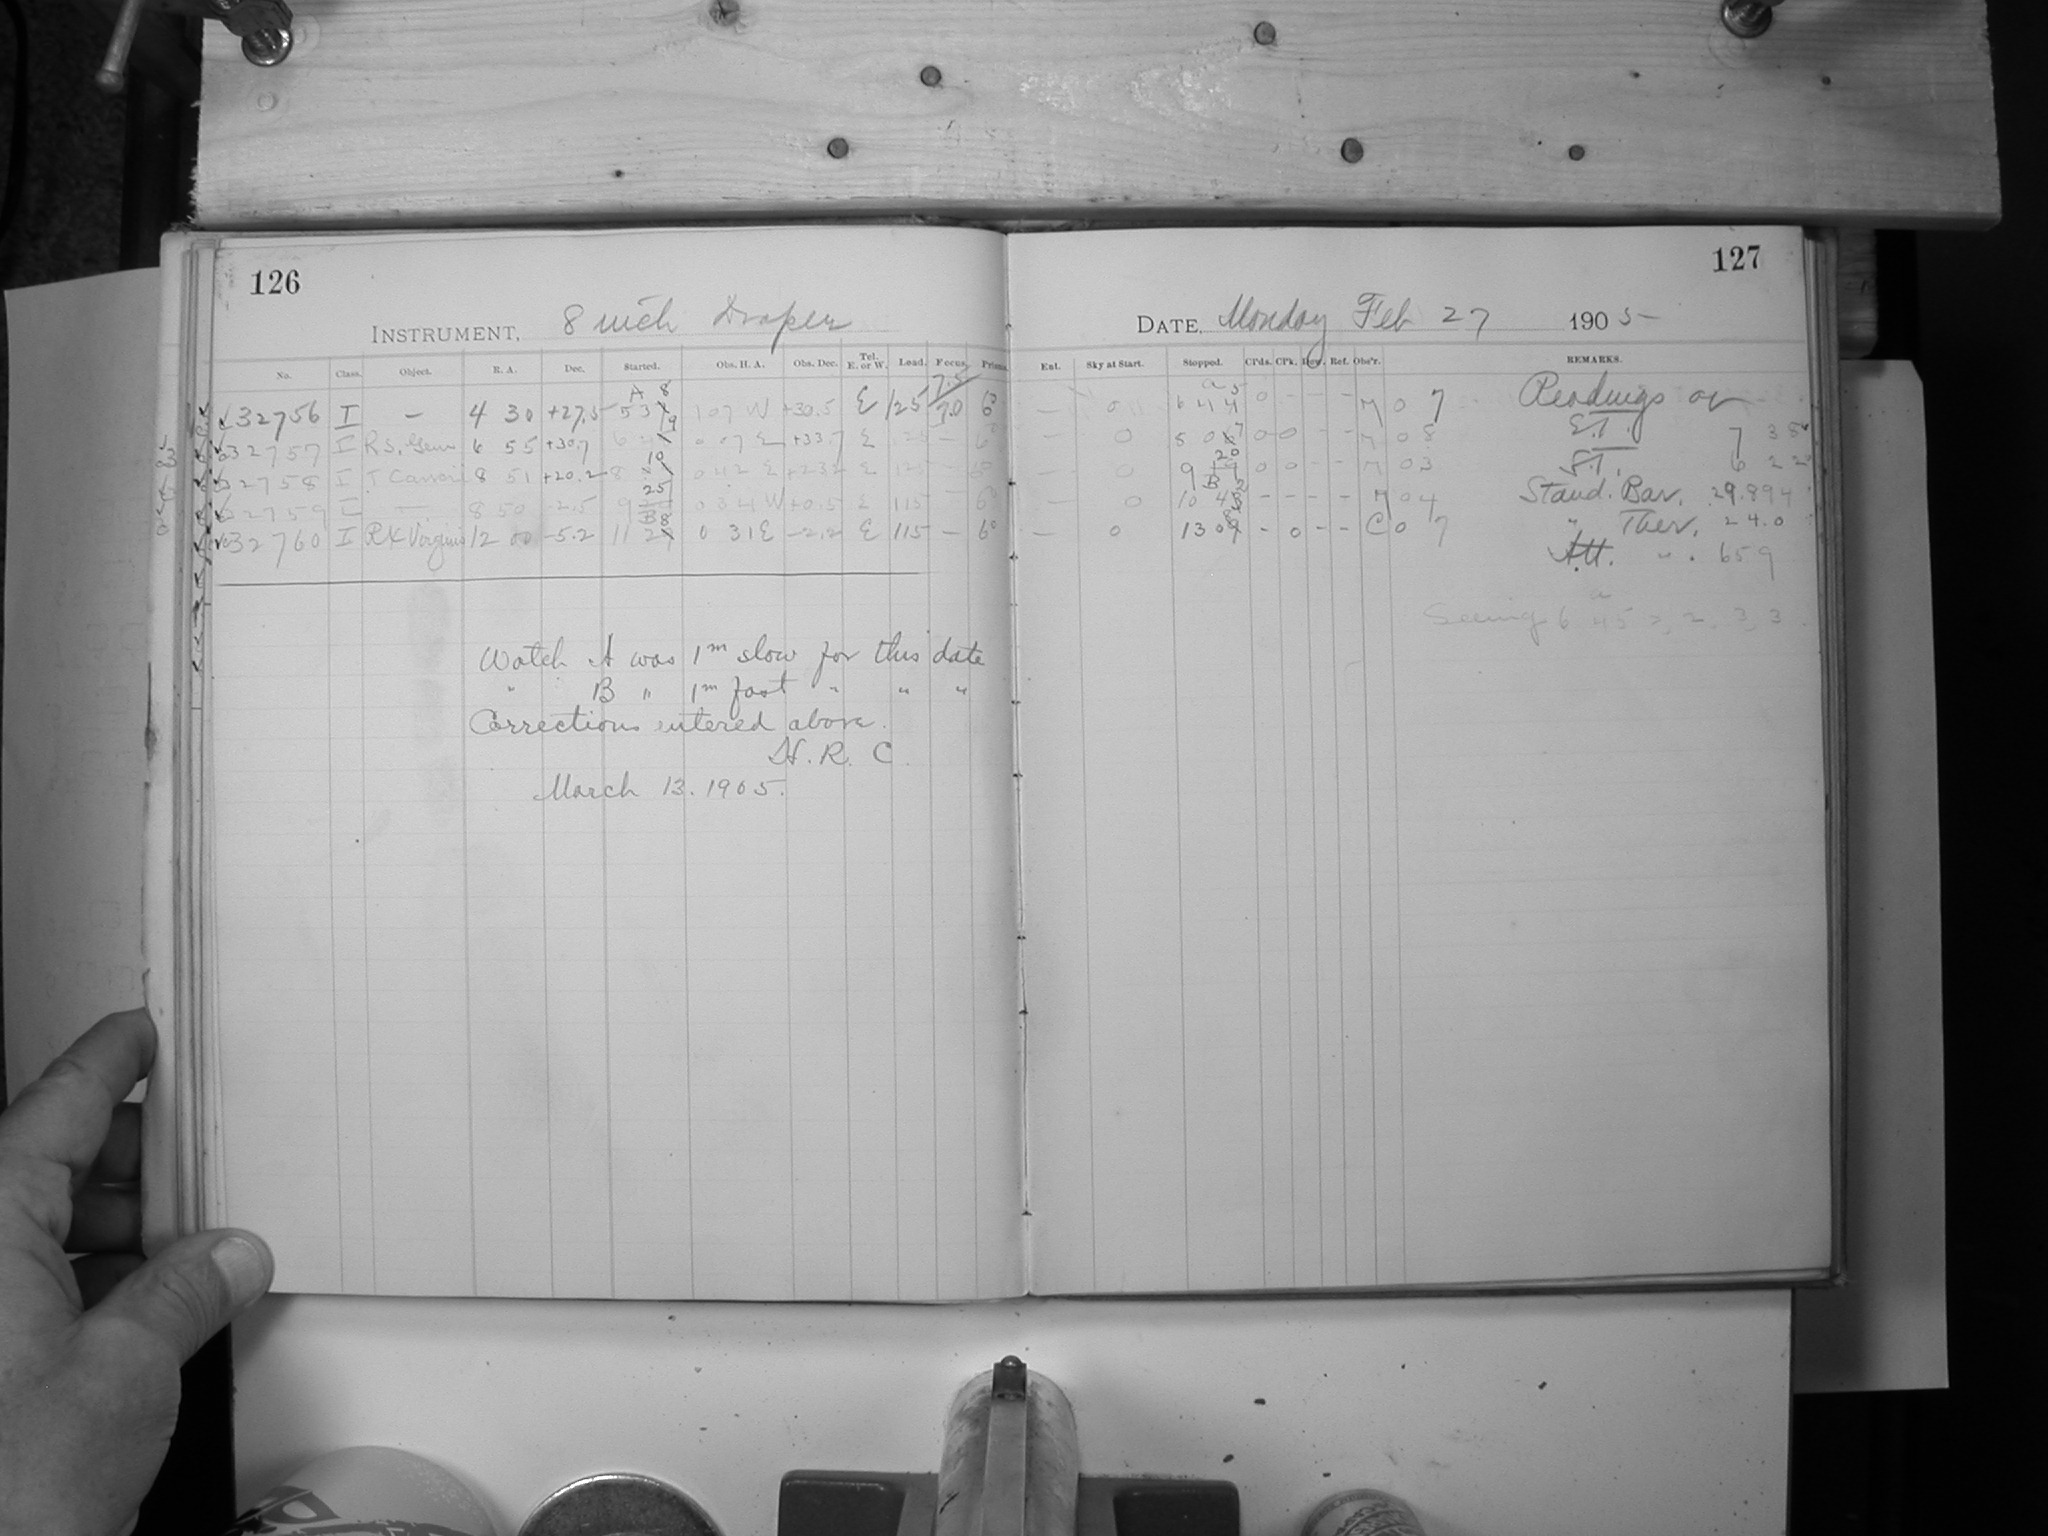 126
127
INSTRUMENT, 8 inch Draper
DATE, Monday Feb 27 1905
No. Class. Object. R. A. Dec. Started. Obs. H. A. Obs. Dec. Tel. E. or W. Load. Focus. Prisms.
Ent. Sky at Start. Stopped. Cl'ds. C'l'k. Dew. Ref. Obs'r. REMARKS.
32756 I — 4 30 +27.5 5 37 8 1 07 W +30.5 E 125 7.5 70 6°
— 0 6 44 5 0 - - - M 0 7 Readings on
32757 I R S. Gem 6 55 +30.7 6 0 07 E +33.7 E 125 — 6°
— 0 8 06 7 0 0 - - M 0 8 E.T. 7 38
32758 I T Cancri 8 51 +20.2 8 10 0 42 E E 125 —
— 0 9 19 20 0 0 - - M 0 3 S.T. 6 22
32759 I — 8 50 -2.5 9 25 0 34 W +0.5 E 115 — 6°
— 0 B 10 4 - - - - M 0 4 Stand. Bar. 29.894
32760 I RX Virginis 12 00 -5.2 B 11 28 0 31 E -2.2 E 115 — 6°
— 0 13 0 8 - 0 - - C 0 7 " Ther. 24.0
Att. " . 65 9
Seeing 6 45 2, 2, 3, 3.
Watch A was 1m slow for this date
" B " 1m fast " " "
Corrections entered above.
H. R. C.
March 13. 1905.